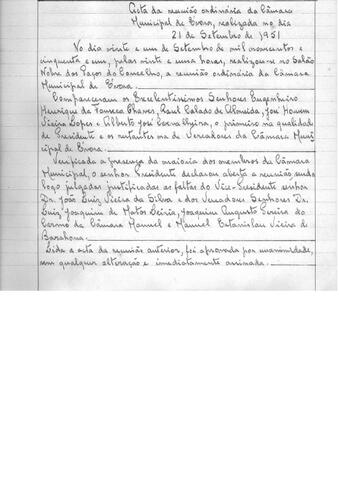 Acta da reunião ordinária da Câmara
Municipal de Évora, realizada no dia
21 de Setembro de 1951
No dia vinte e um de Setembro de mil novecentos e
cinquenta e um, pelas vinte e uma horas, realizou-se no Salão
Nobre dos Paços do Concelho, a reunião ordinária da Câmara
Municipal de Évora.
Compareceram os Excelentíssimos Senhores Engenheiro
Henrique da Fonseca Chaves, Raul Calado de Almeida, José Homem
Vieira Lopes e Alberto José Carvalheira, o primeiro na qualidade
de Presidente e os restantes na de Vereadores da Câmara Muni-
cipal de Évora.
Verificada a presença da maioria dos membros da Câmara
Municipal, o senhor Presidente declarou aberta a reunião sendo
logo julgadas justificadas as faltas do Vice-Presidente senhor
Dr. João Luiz Vieira da Silva e dos Vereadores Senhores Dr.
Luiz Joaquim de Matos, Joaquim Augusto Pereira do
Carmo da Câmara Manuel e Manuel Estanislau Vieira de
Barahona.
Lida a acta da reunião anterior, foi aprovada por unanimidade,
sem qualquer alteração e imediatamente assinada.